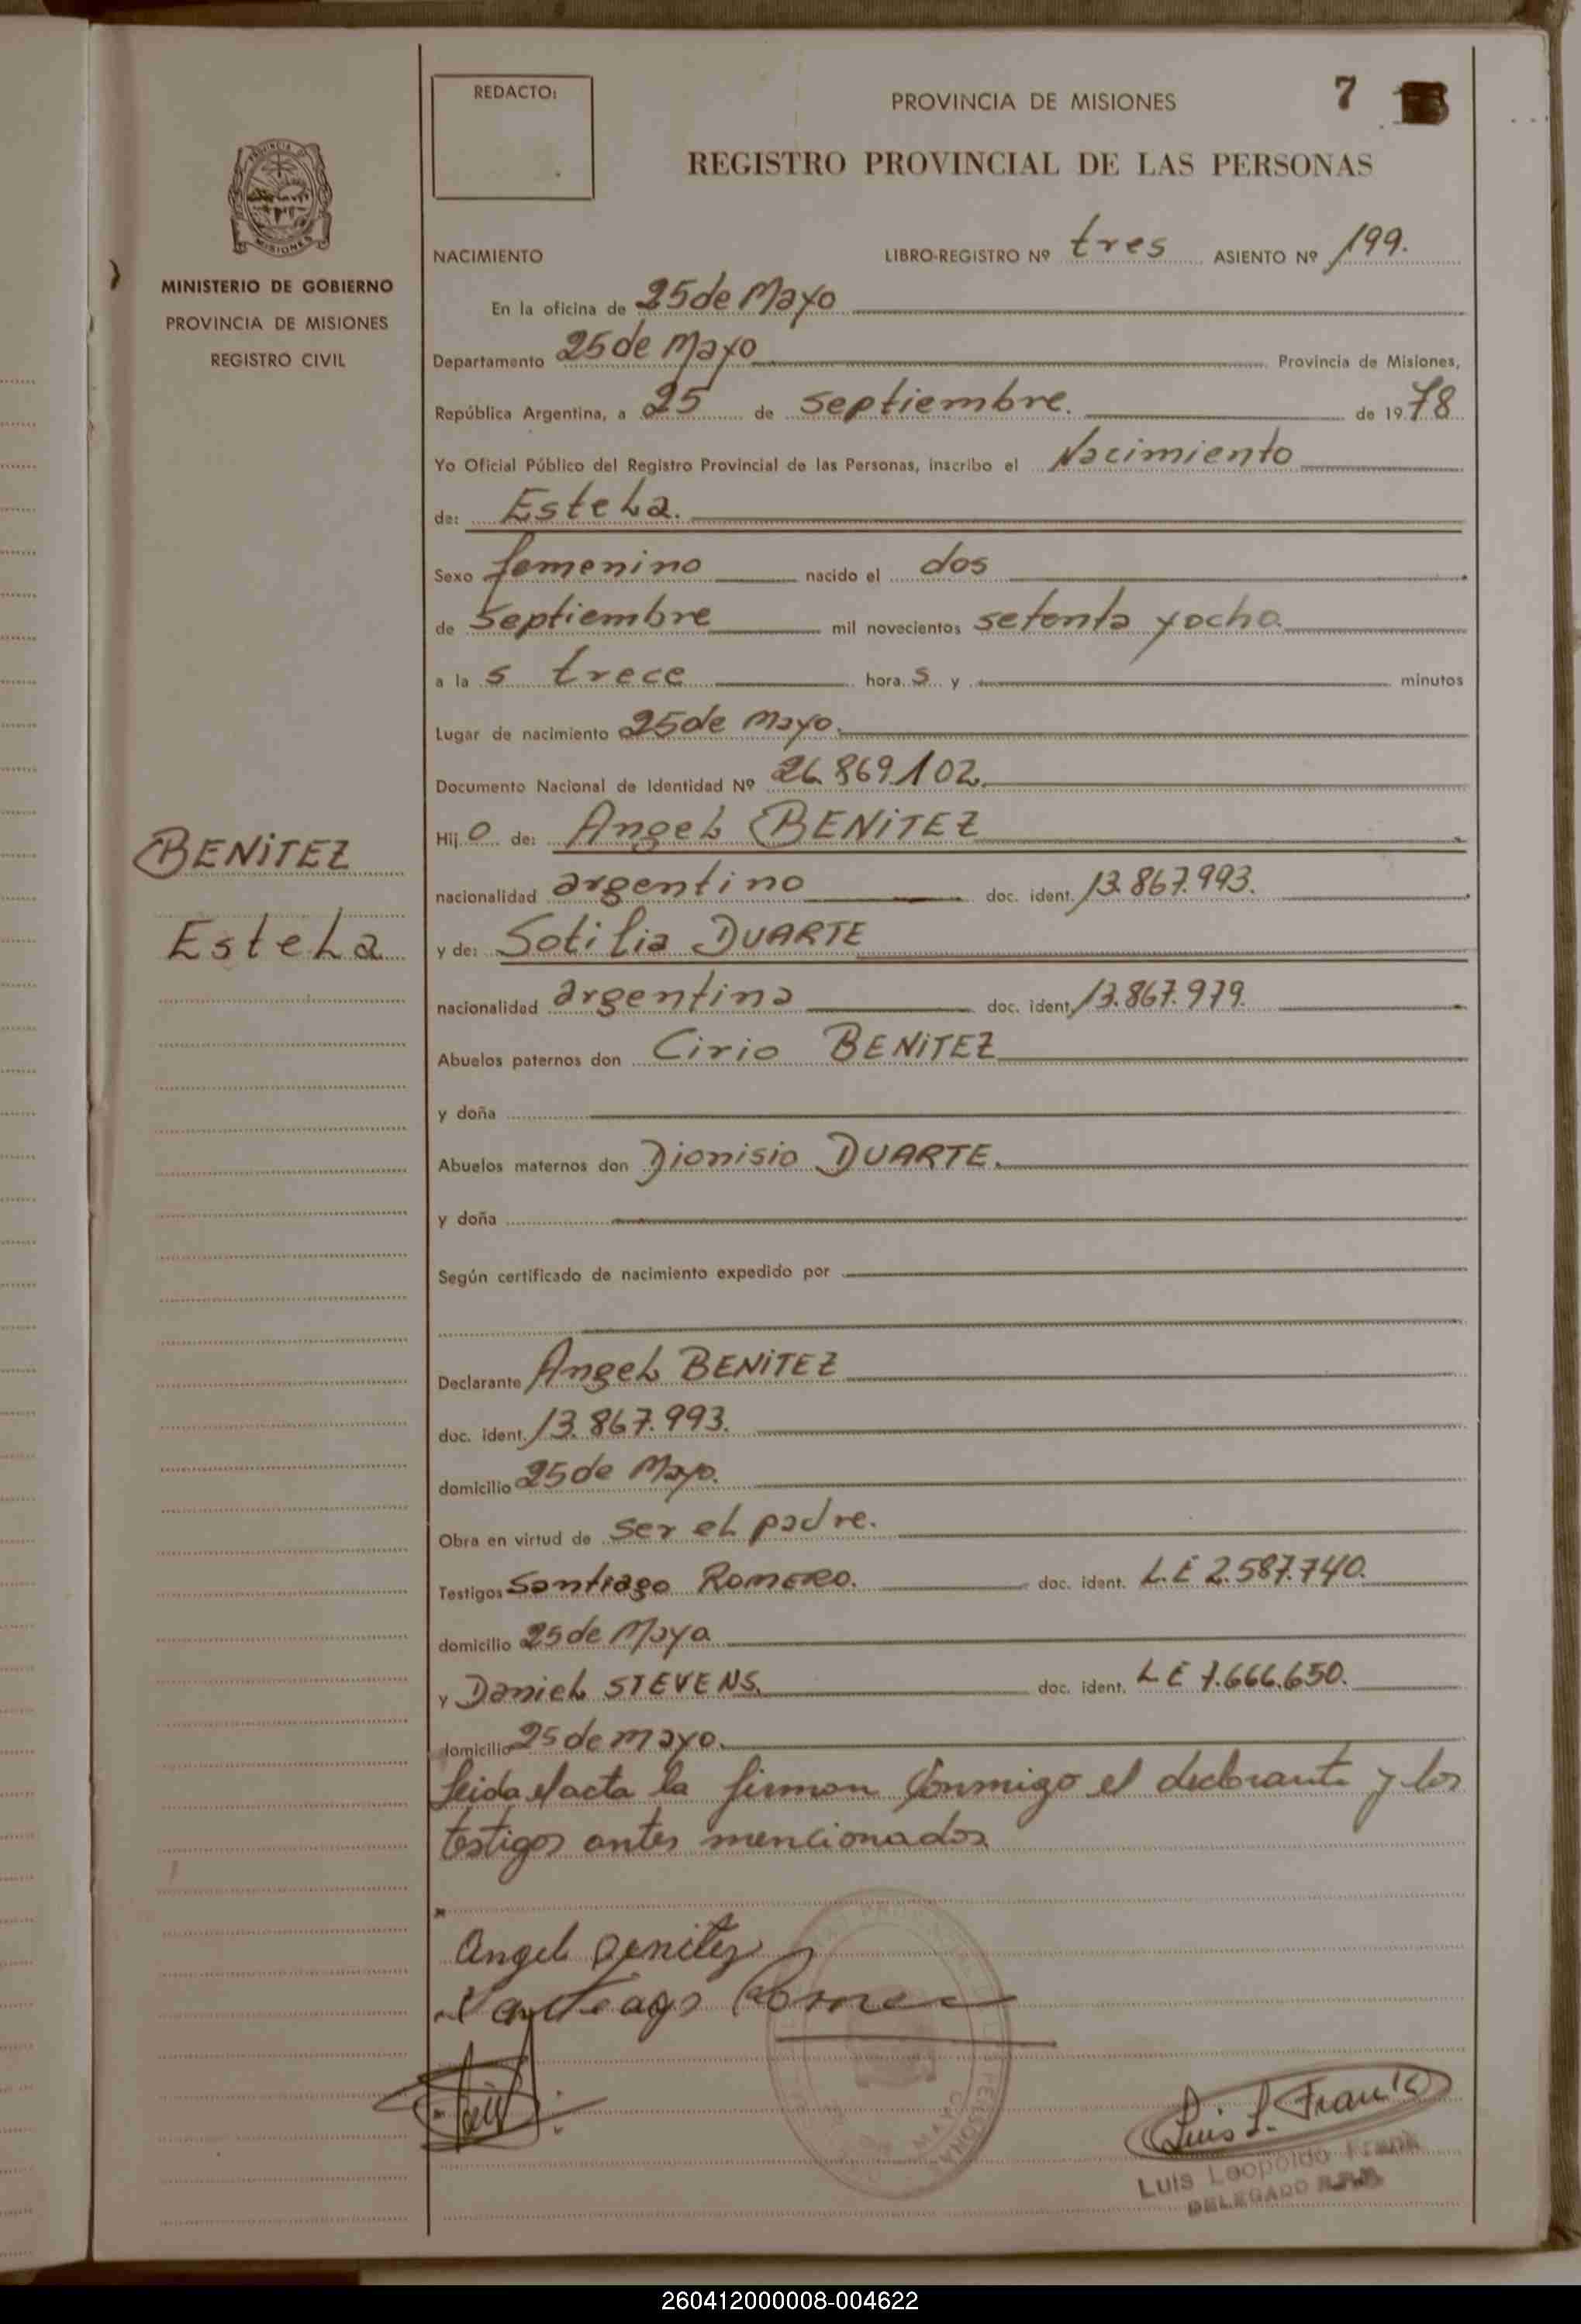 REDACTO:
PROVINCIA DE MISIONES
7
REGISTRO PROVINCIAL DE LAS PERSONAS
MISIONES
MINISTERIO DE GOBIERNO
PROVINCIA DE MISIONES
REGISTRO CIVIL
NACIMIENTO LIBRO-REGISTRO Nº tres ASIENTO Nº 199.
En la oficina de 25 de Mayo
Departamento 25 de Mayo Provincia de Misiones,
República Argentina, a 25 de septiembre. de 1978
Yo Oficial Público del Registro Provincial de las Personas, inscribo el Nacimiento
de: Estela.
Sexo femenino nacido el dos
de Septiembre mil novecientos setenta y ocho
a la s trece hora s y minutos
Lugar de nacimiento 25 de Mayo.
Documento Nacional de Identidad Nº 26.869.102.
BENITEZ
Estela
Hij o de: Angel BENITEZ
nacionalidad argentino doc. ident. 13.867.993.
y de: Sotilia DUARTE
nacionalidad argentina doc. ident. 13.867.979.
Abuelos paternos don Cirio BENITEZ
y doña
Abuelos maternos don Dionisio DUARTE.
y doña
Según certificado de nacimiento expedido por
Declarante Angel BENITEZ
doc. ident. 13.867.993.
domicilio 25 de Mayo.
Obra en virtud de ser el padre.
Testigos Santiago ROMERO. doc. ident. L.E 2.587.740.
domicilio 25 de Mayo
y Daniel STEVENS. doc. ident. L E 7.666.650.
domicilio 25 de mayo.
Leida el acta la firman conmigo el declarante y los
testigos antes mencionados
Angel Benitez
Santiago Romero
Luis L. Frank
Luis Leopoldo Frank
DELEGADO
260412000008-004622